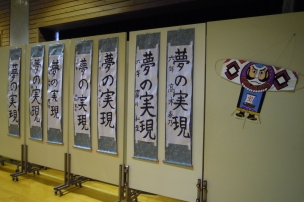 夢の実現
夢の実現
夢の実現
夢の実現
夢の実現
夢の実現
六年
夢の実現
六年